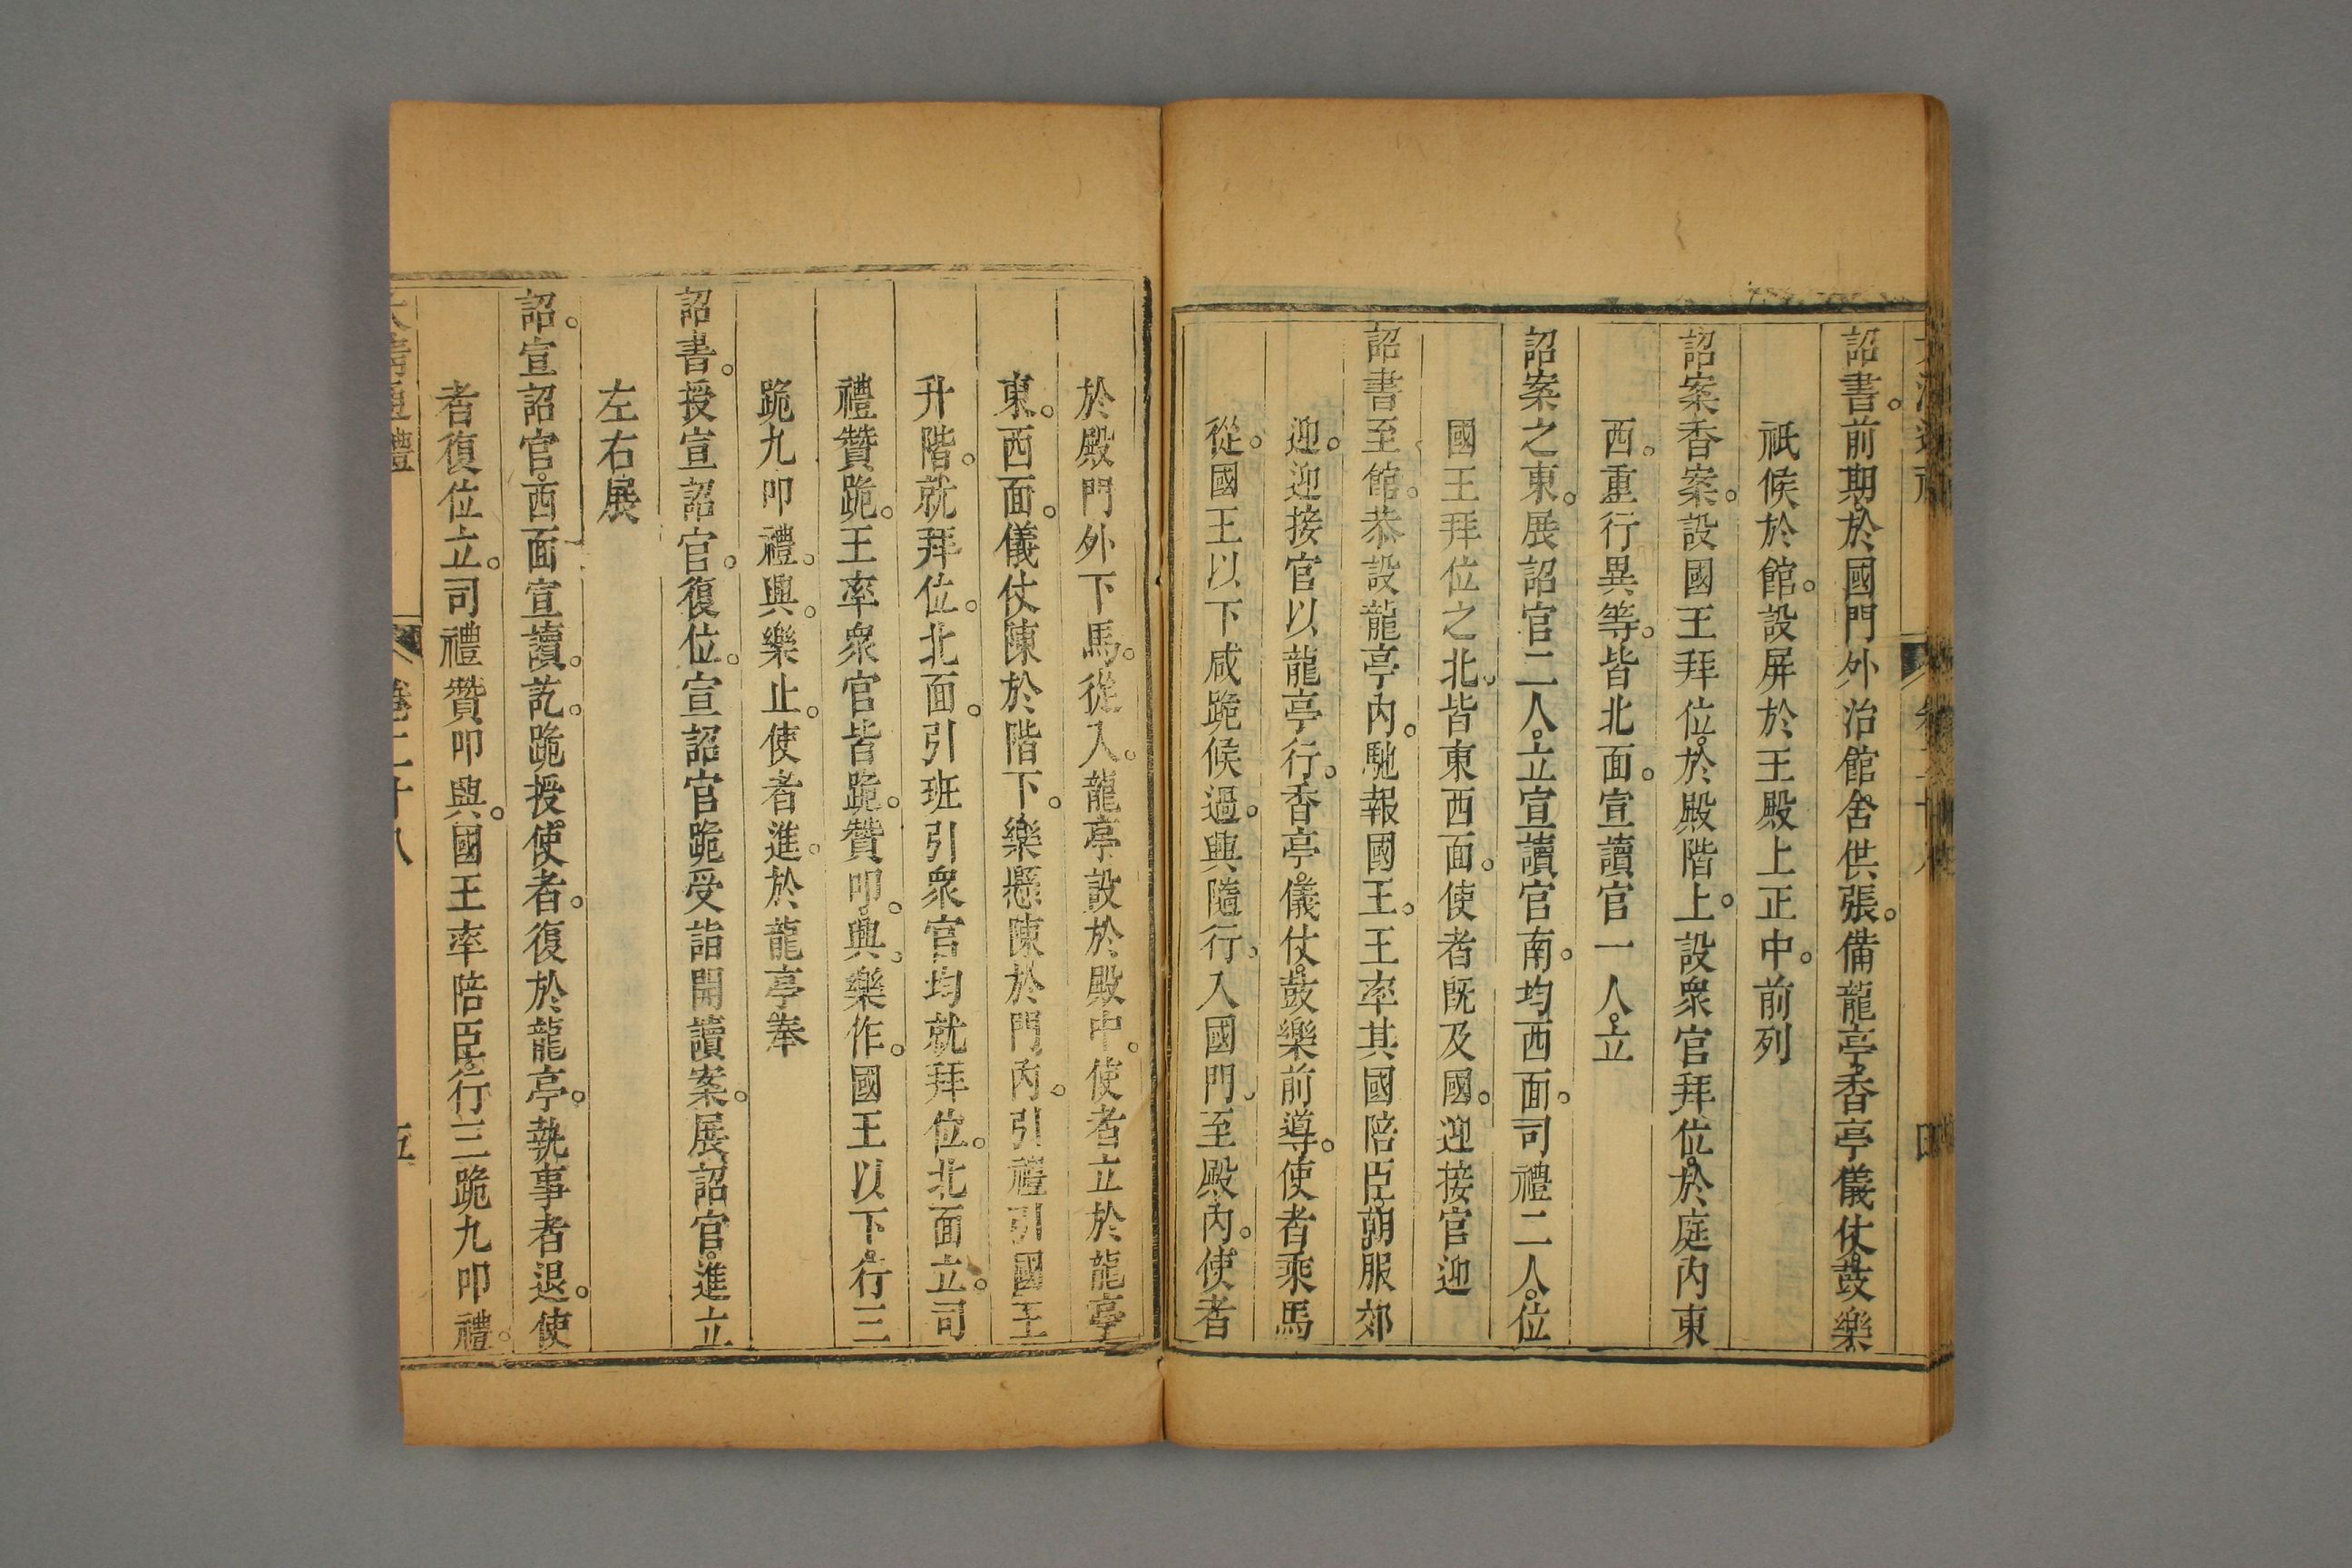 詔書。前期。於國門外治館舍。供張。備龍亭。香亭儀仗。鼓樂
祇候於館。設屏於王殿上正中。前列
詔案香案。設國王拜位。於殿階上。設衆官拜位。於庭內東
西。重行異等。皆北面。宣讀官一人。立
詔案之東。展詔官二人。立宣讀官南。均西面。司禮二人。位
國王拜位之北。皆東西面。使者既及國。迎接官迎
詔書至館。恭設龍亭內。馳報國王。王率其國陪臣。朝服郊
迎。迎接官以龍亭行。香亭。儀仗。鼓樂前導。使者乘馬
從。國王以下咸跪候過。興隨行。入國門。至殿內。使者
於殿門外下馬。從入。龍亭設於殿中。使者立於龍亭
東。西面。儀仗陳於階下。樂懸陳於門內。引禮引國王
升階。就拜位。北面。引班引衆官均就拜位。北面立。司
禮贊跪。王率衆官皆跪。贊叩。興。樂作。國王以下。行三
跪九叩禮。興。樂止。使者進。於龍亭奉
詔書。授宣詔官。復位。宣詔官跪受詣開讀案。展詔官。進立
左右展
詔。宣詔官。西面宣讀。訖。跪授。使者。復於龍亭。執事者退。使
者復位立。司禮贊叩興。國王率陪臣。行三跪九叩禮。
大清通禮 卷二十八 五